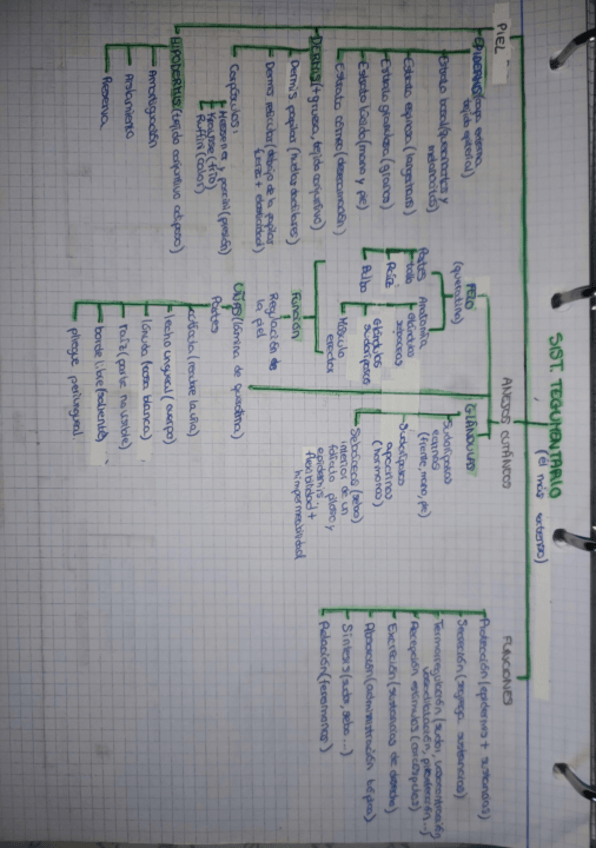 SIST. TEGUMENTARIO
(el más extenso)
PIEL
EPIDERMIS (capa externa,
tejido epitelial)
Estrato basal (queratinocitos y
melanocitos)
Estrato espinoso (langerhans)
Estrato granuloso (granos)
Estrato lúcido (mano y pie)
Estrato córneo (descamación)
DERMIS (+ gruesa, tejido conjuntivo)
Dermis papilar (huellas dactilares)
Dermis reticular (debajo de la papilar
fuerza + elasticidad)
Corpúsculos:
Meissner y paccini (presión)
Krausse (frío)
Ruffini (calor)
HIPODERMIS (tejido conjuntivo adiposo)
Amortiguación
Aislamiento
Reserva
ANEJOS CUTÁNEOS
PELO
(queratina)
Partes
tallo
Raíz
Bulbo
Anatomía
Glándulas
sebáceas
Glándulas
sudoríparas
Músculo
erector
Función
Regulación de
la piel
UÑAS (lámina de queratina)
Partes
cutícula (recubre la uña)
Lecho ungueal (cuerpo)
Lúnula (zona blanca)
raíz (parte no visible)
borde libre (saliente)
pliegue periungueal
GLÁNDULAS
Sudoríparas
ecrinas
(frente, mano, pie)
Sudoríparas
apocrinas
(hormonas)
Sebáceas (sebo)
interior de un
folículo piloso y
epidermis.
flexibilidad +
impermeabilidad
FUNCIONES
Protección (epidermis + sustancias)
Secreción (segrega sustancias)
Termorregulación (sudor, vasoconstricción
vasodilatación, piloerección...)
Recepción estímulos (corpúsculos)
Excreción (sustancias de desecho)
Absorción (administración tópica)
Síntesis (sudor, sebo...)
Relación (feromonas)